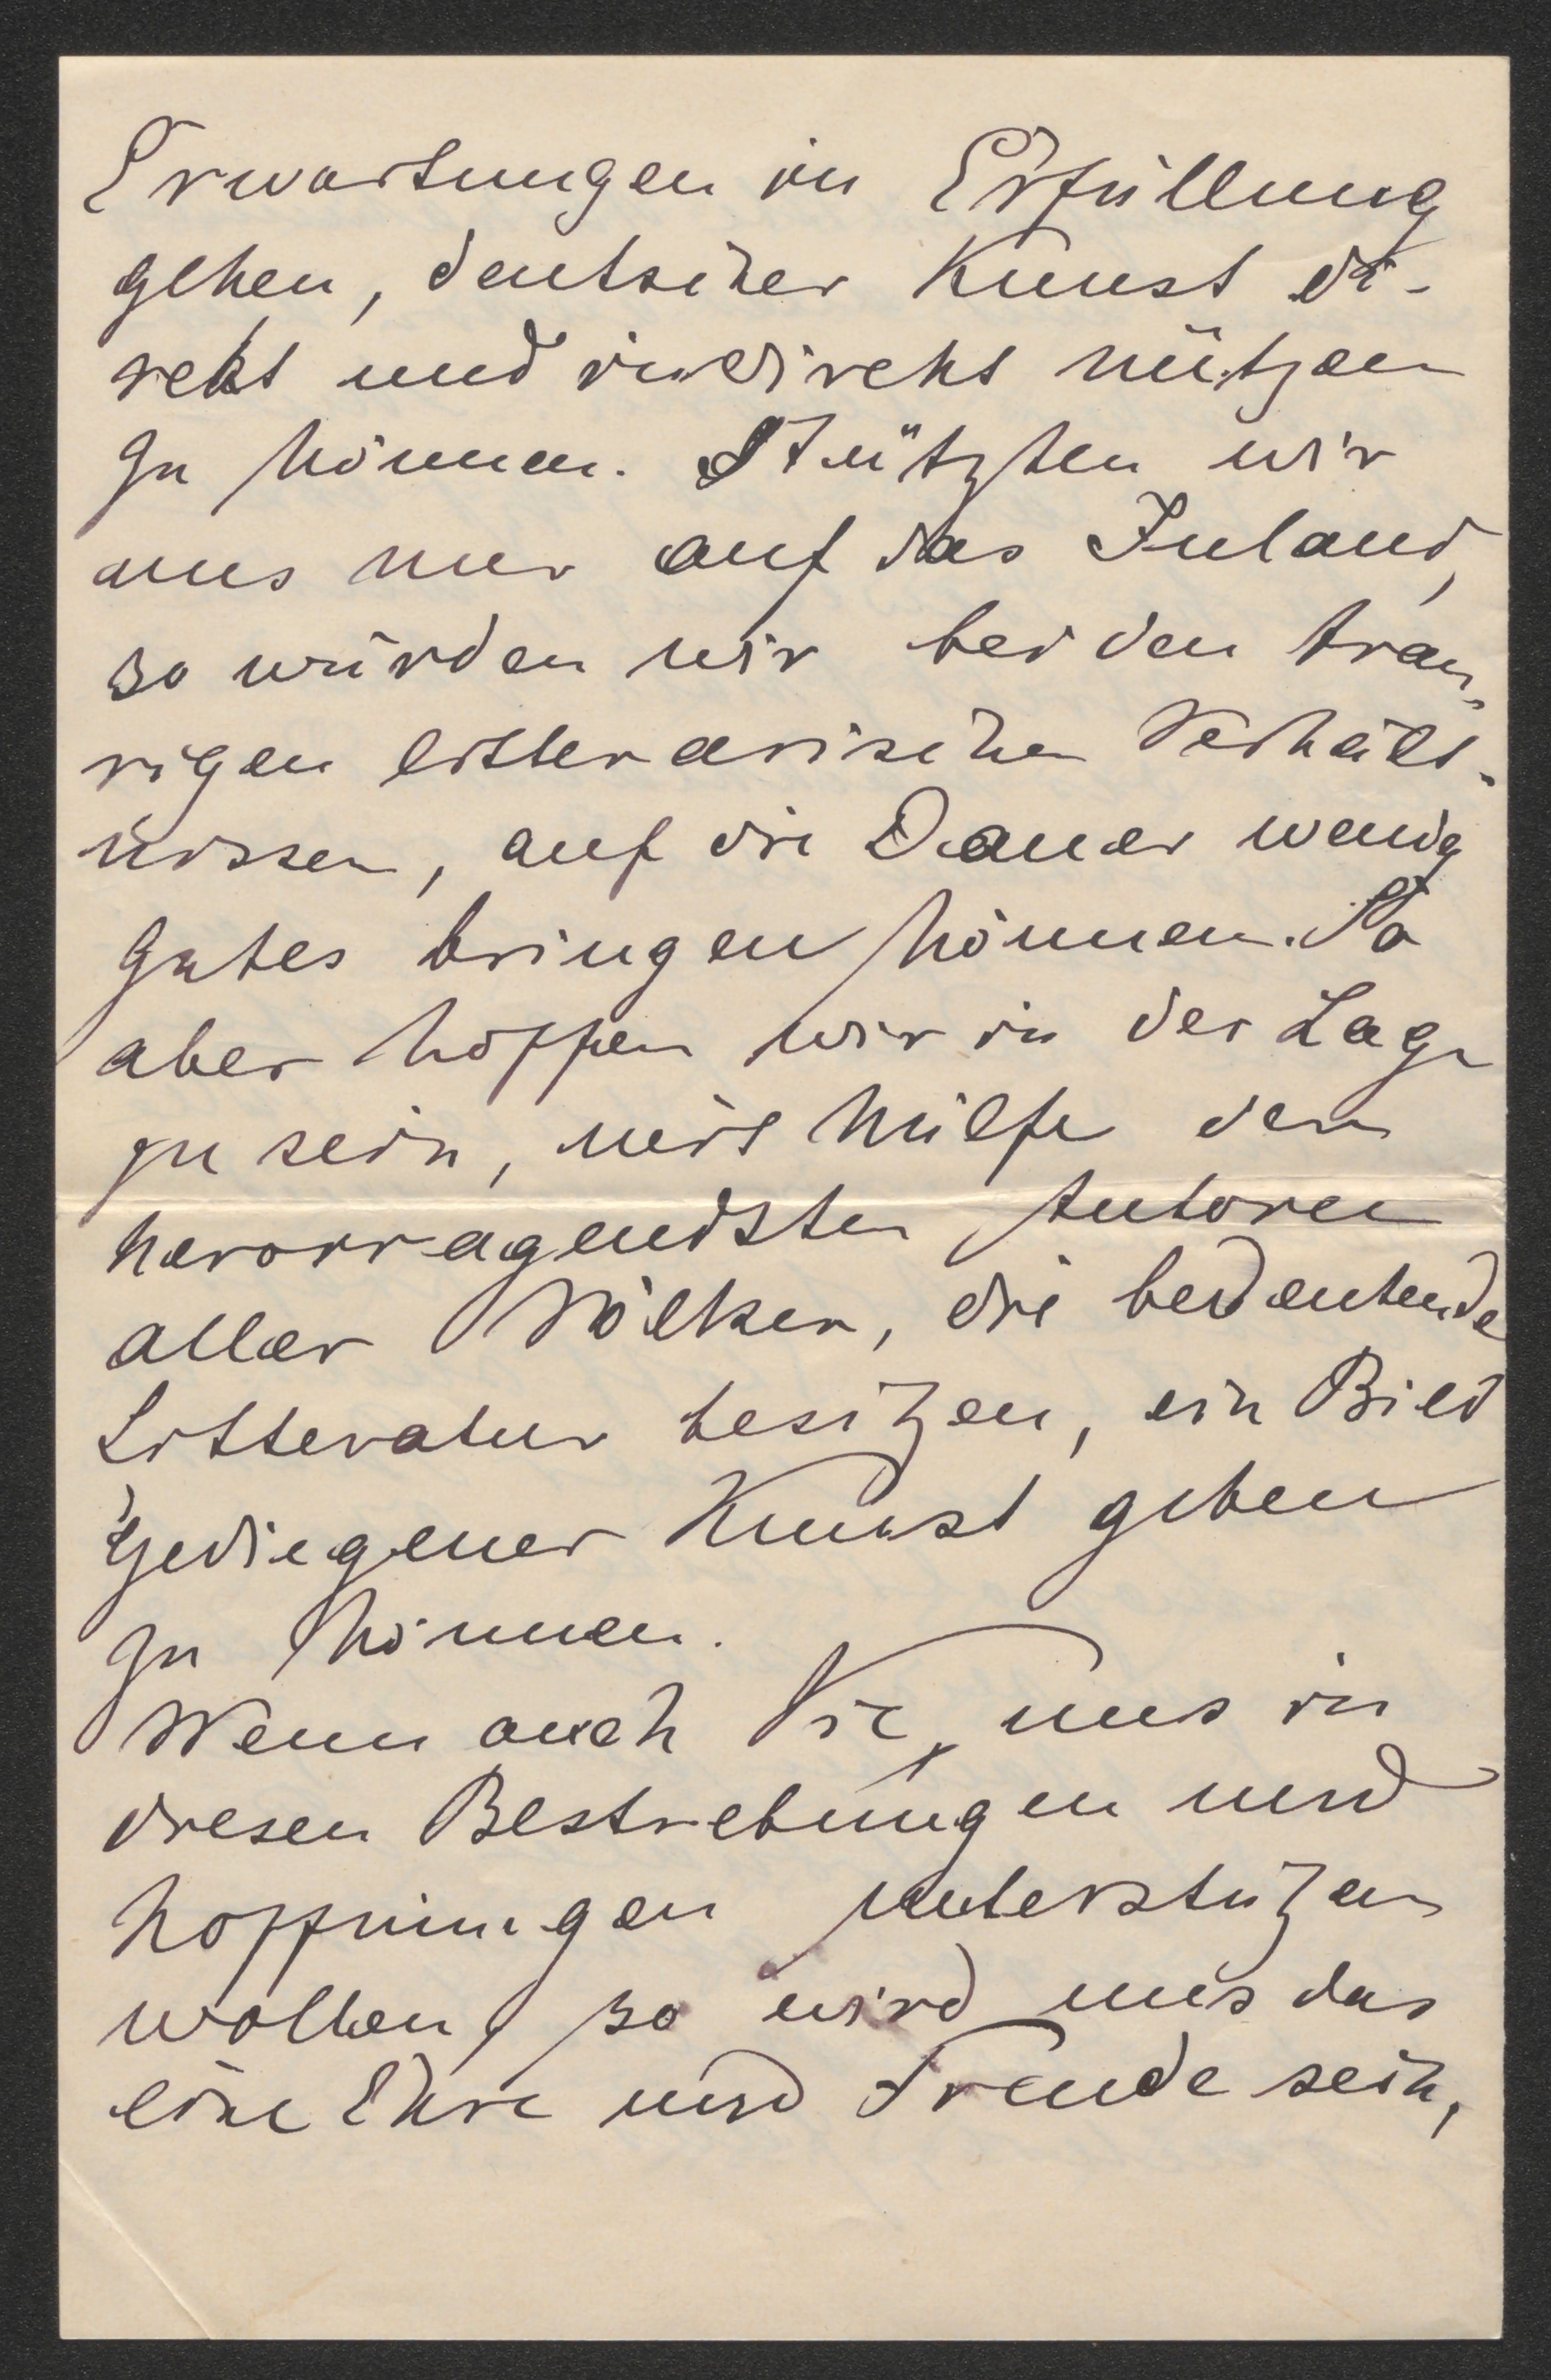 Erwartungen in Erfüllung
gehen, deutscher Kunst di-
rekt und indirekt nützen
zu können. Stützten wir
uns nur auf das Inland,
so würden wir bei den trau-
rigen litterarischen Verhält-
nissen, auf die Dauer wenig
Gutes bringen können. So
aber hoffen wir in der Lage
zu sein, mit Hülfe der
hervorragendsten Autoren
aller Völker, die bedeutende
Litteratur besitzen, ein Bild
gediegener Kunst geben
zu können.
Wenn auch Sie, uns in
diesen Bestrebungen und
Hoffnungen unterstützen
wollen, so wird uns das
eine Ehre und Freude sein,